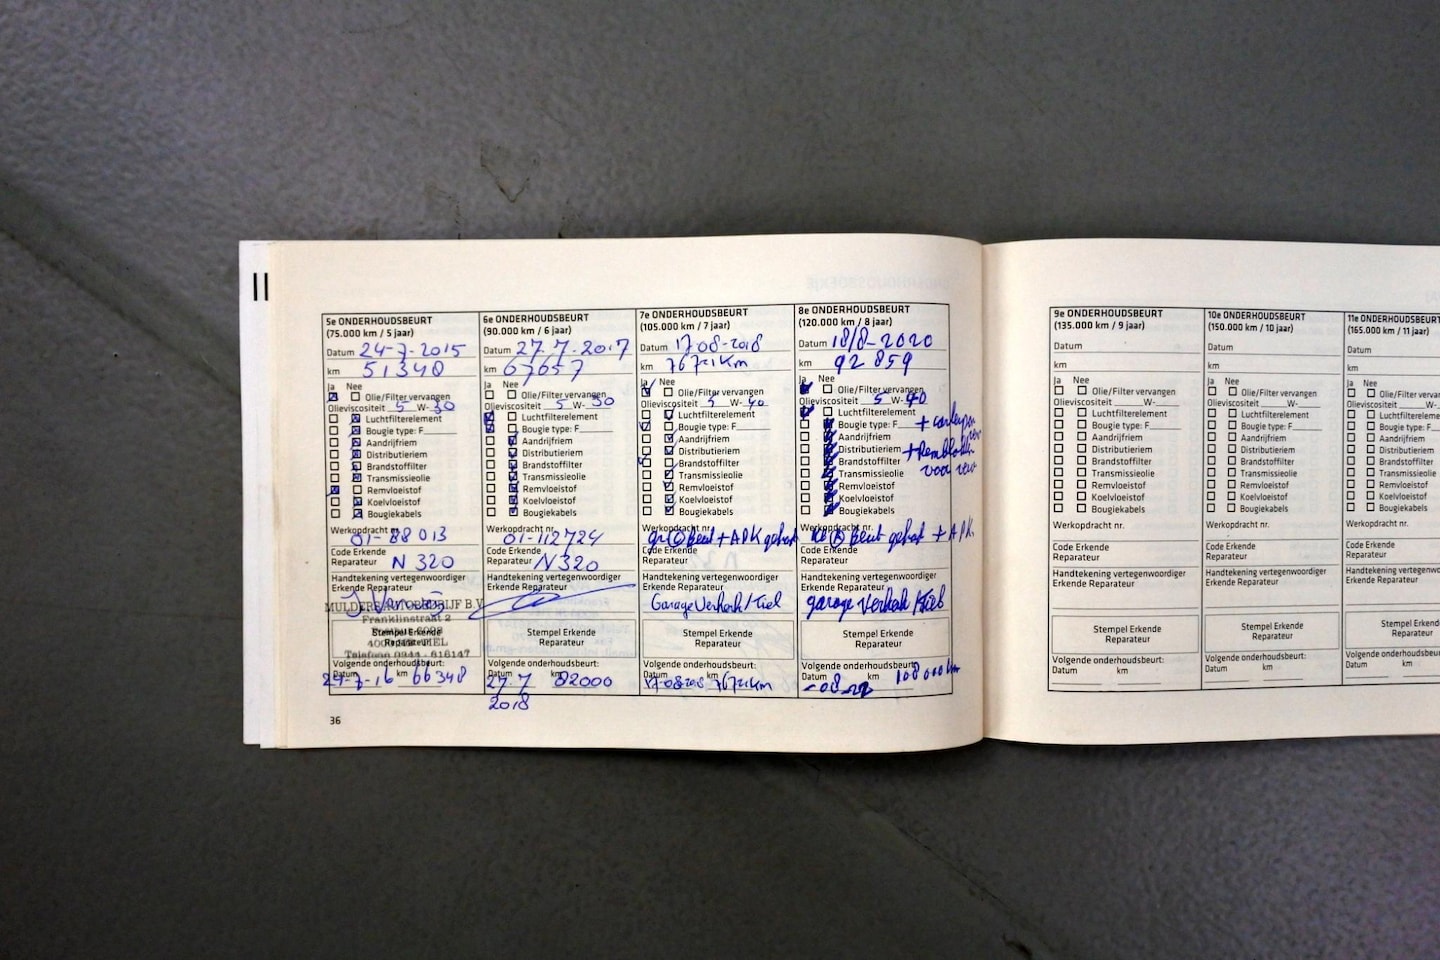 5e ONDERHOUDSBEURT
(75.000 km / 5 jaar)
Datum 24-7-2015
km 51348
Ja Nee
Olie/Filter vervangen
Olieviscositeit 5 W- 30
Luchtfilterelement
Bougie type: F
Aandrijfriem
Distributieriem
Brandstoffilter
Transmissieolie
Remvloeistof
Koelvloeistof
Bougiekabels
Werkopdracht nr.
01-88013
Code Erkende
Reparateur N 320
Handtekening vertegenwoordiger
Erkende Reparateur
MULDERS AUTOBEDRIJF B.V.
Franklinstraat 2
Stempel Erkende
Reparateur
TIEL
Telefoon 0344 - 616147
Volgende onderhoudsbeurt:
Datum km
27-7-16 66348
36
6e ONDERHOUDSBEURT
(90.000 km / 6 jaar)
Datum 27.7.2017
km 67657
Ja Nee
Olie/Filter vervangen
Olieviscositeit 5 W- 30
Luchtfilterelement
Bougie type: F
Aandrijfriem
Distributieriem
Brandstoffilter
Transmissieolie
Remvloeistof
Koelvloeistof
Bougiekabels
Werkopdracht nr.
01-112724
Code Erkende
Reparateur N320
Handtekening vertegenwoordiger
Erkende Reparateur
Stempel Erkende
Reparateur
Volgende onderhoudsbeurt:
Datum km
27.7 82000
2018
7e ONDERHOUDSBEURT
(105.000 km / 7 jaar)
Datum 17-08-2018
km 76721km
Ja Nee
Olie/Filter vervangen
Olieviscositeit 5 W- 40
Luchtfilterelement
Bougie type: F
Aandrijfriem
Distributieriem
Brandstoffilter
Transmissieolie
Remvloeistof
Koelvloeistof
Bougiekabels
Werkopdracht nr.
Beurt + APK gehad
Code Erkende
Reparateur
Handtekening vertegenwoordiger
Erkende Reparateur
Garage Verkerk/Tiel
Stempel Erkende
Reparateur
Volgende onderhoudsbeurt:
Datum km
17-08-2018 76721km
8e ONDERHOUDSBEURT
(120.000 km / 8 jaar)
Datum 18/8-2020
km 92 859
Ja Nee
Olie/Filter vervangen
Olieviscositeit 5 W- 40
Luchtfilterelement
Bougie type: F
Aandrijfriem
Distributieriem
+ Remblokken
Brandstoffilter
voor
Transmissieolie
Remvloeistof
Koelvloeistof
Bougiekabels
Werkopdracht nr.
Beurt gehad + APK
Code Erkende
Reparateur
Handtekening vertegenwoordiger
Erkende Reparateur
garage Verkerk Tiel
Stempel Erkende
Reparateur
Volgende onderhoudsbeurt:
Datum km 108000km
-08-22
9e ONDERHOUDSBEURT
(135.000 km / 9 jaar)
Datum
km
Ja Nee
Olie/Filter vervangen
Olieviscositeit W-
Luchtfilterelement
Bougie type: F
Aandrijfriem
Distributieriem
Brandstoffilter
Transmissieolie
Remvloeistof
Koelvloeistof
Bougiekabels
Werkopdracht nr.
Code Erkende
Reparateur
Handtekening vertegenwoordiger
Erkende Reparateur
Stempel Erkende
Reparateur
Volgende onderhoudsbeurt:
Datum km
10e ONDERHOUDSBEURT
(150.000 km / 10 jaar)
Datum
km
Ja Nee
Olie/Filter vervangen
Olieviscositeit W-
Luchtfilterelement
Bougie type: F
Aandrijfriem
Distributieriem
Brandstoffilter
Transmissieolie
Remvloeistof
Koelvloeistof
Bougiekabels
Werkopdracht nr.
Code Erkende
Reparateur
Handtekening vertegenwoordiger
Erkende Reparateur
Stempel Erkende
Reparateur
Volgende onderhoudsbeurt:
Datum km
11e ONDERHOUDSBEURT
(165.000 km / 11 jaar)
Datum
km
Ja Nee
Olie/Filter vervangen
Olieviscositeit W-
Luchtfilterelement
Bougie type: F
Aandrijfriem
Distributieriem
Brandstoffilter
Transmissieolie
Remvloeistof
Koelvloeistof
Bougiekabels
Werkopdracht nr.
Code Erkende
Reparateur
Handtekening vertegenwoordiger
Erkende Reparateur
Stempel Erkende
Reparateur
Volgende onderhoudsbeurt:
Datum km